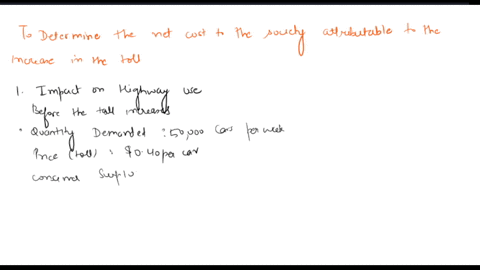 To Determine the net cost to the society attributable to the
increase in the toll
1. Impact on Highway use
Before the toll increases
• Quantity Demanded : 50,000 cars per week
Price (toll) : $0.40 per car
Consumer Surplu